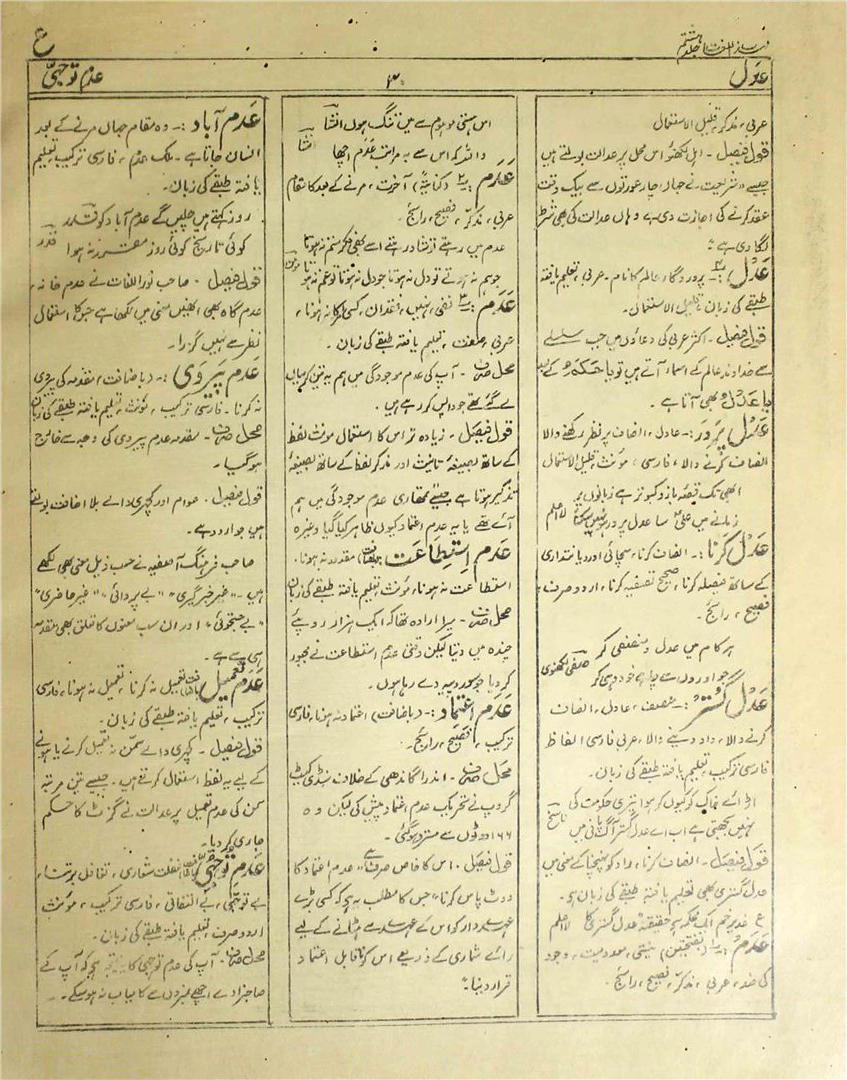 ع
مہذب اللغات جلد ہشتم
عدل
۳۰
عدم توجہی
عربی، مذکر، قلیل الاستعمال
قول فیصل ۔ اہل لکھنؤ اس محل پر عدالت بولتے ہیں
جیسے، شریعت نے جہاں چار عورتوں سے بیک وقت
عقد کرنے کی اجازت دی ہے وہاں عدالت کی بھی شرط
لگا دی ہے
عدل :۔ پروردگار عالم کا نام ۔ عربی، تعلیم یافتہ
طبقے کی زبان، قلیل الاستعمال۔
قول فیصل ۔ اکثر عربی کی دعاؤں میں جب سلسلے
سے خداوند عالم کے اسماء آتے ہیں تو یا حکم کے بعد
یا عدل بھی آتا ہے۔
عدل پرور :۔ عادل، انصاف پر نظر رکھنے والا
انصاف کرنے والا، فارسی، مؤنث، قلیل الاستعمال
ابھی تک قبضہ بازو کبوتر ہے زبانوں پر
زمانے میں علی سا عدل پرور ہو نہیں سکتا لا اعلم
عدل کرنا :۔ انصاف کرنا، سچائی اور دیانتداری
کے ساتھ فیصلہ کرنا، صحیح تصفیہ کرنا، اردو صرف،
فصیح، رائج۔
ہر کام میں عدل و منصفی کر صفی لکھنوی
جو اوروں سے چاہے خود وہی کر
عدل گستر :۔ منصف، عادل، انصاف
کرنے والا، داد دینے والا، عربی فارسی الفاظ
فارسی ترکیب، تعلیم یافتہ طبقے کی زبان۔
اڑائے خاک کو کیوں کر ہوا تیری حکومت کی ناسخ
نہیں بجھتی ہے اب اے عدل گستر آگ پانی میں
قول فیصل ۔ انصاف کرنا، داد کو پہنچنا کے معنی میں
عدل گستری بھی تعلیم یافتہ طبقے کی زبان ہے۔
ع غدیر خم ایک محکمہ ہے حقیقتہ عدل گستری کا لا اعلم
عدم :۔ (بفتحتین) نیستی، معدومیت، وجود
کی ضد، عربی، مذکر، فصیح، رائج۔
اس ہستی موہوم سے میں تنگ ہوں انشا انشا
واللہ کہ اس سے بہ مراتب عدم اچھا
عدم :۔ (کنایۃً) آخرت، مرنے کے بعد کا مقام
عربی، مذکر، فصیح، رائج۔
عدم میں رہتے تو شاد رہتے اسے بھی فکر ستم نہ ہوتا
جو ہم نہ ہوتے تو دل نہ ہوتا جو دل نہ ہوتا تو غم نہ ہوتا مومن
عدم :۔ نفی، نہیں، فقدان، کسی امر کا نہ ہونا،
عربی، صفت، تعلیم یافتہ طبقے کی زبان۔
محل صرف ۔ آپ کی عدم موجودگی میں ہم یہ تین کرسیاں
لے گئے تھے جو واپس کر رہے ہیں۔
قول فیصل ۔ زیادہ تر اس کا استعمال مونث لفظ
کے ساتھ بصیغۂ تانیث اور مذکر لفظ کے ساتھ بصیغۂ
تذکیر ہوتا ہے جیسے تمھاری عدم موجودگی میں ہم
آئے تھے یا یہ عدم اعتماد کیوں ظاہر کیا گیا وغیرہ
عدم استطاعت :۔ (باضافت) مقدور نہ ہونا۔
استطاعت نہ ہونا، مؤنث، تعلیم یافتہ طبقے کی زبان
محل صرف ۔ میرا ارادہ تھا کہ ایک ہزار روپئے
چندہ میں دیتا لیکن وقتی عدم استطاعت نے مجبور
کر دیا جو سو روپیہ دے رہا ہوں۔
عدم اعتماد :۔ (باضافت) اعتماد نہ ہونا، فارسی
ترکیب، فصیح، رائج۔
محل صرف ۔ اندرا گاندھی کے خلاف سنڈی کیٹ
گروپ نے تحریک عدم اعتماد پیش کی لیکن وہ
۱۶۶ ووٹوں سے مسترد ہوگئی۔
قول فیصل ۔ اس کا خاص صرف ہے "عدم اعتماد کا
ووٹ پاس کرنا" جس کا مطلب ہے کہ کسی بڑے
عہدے دار کو اس کے عہدے سے ہٹانے کے لیے
رائے شماری کے ذریعے اس کو ناقابل اعتماد
قرار دینا۔
عدم آباد :۔ وہ مقام جہاں مرنے کے بعد
انسان جاتا ہے ۔ ملک عدم، فارسی ترکیب، تعلیم
یافتہ طبقے کی زبان۔
روز کہتے ہیں چلیں گے عدم آباد کو قدر قدر
کوئی تاریخ کوئی روز مقرر نہ ہوا
قول فیصل ۔ صاحب نور اللغات نے عدم خانہ،
عدم گاہ بھی انھیں معنی میں لکھا ہے جس کا استعمال
نظر سے نہیں گزرا۔
عدم پیروی :۔ (باضافت) مقدمہ کی پیروی
نہ کرنا ۔ فارسی ترکیب، مؤنث، تعلیم یافتہ طبقے کی زبان
محل صرف ۔ مقدمہ عدم پیروی کی وجہ سے خارج
ہوگیا۔
قول فیصل ۔ عوام اور کچہری والے بلا اضافت بولتے
ہیں جو اردو ہے۔
صاحب فرہنگ آصفیہ نے حسب ذیل معنی بھی لکھے
ہیں ۔ "غیر خبر گیری" "بے پروائی" "غیر حاضری"
"بے جستجوئی" اور ان سب معنوں کا تعلق بھی مقدمہ
ہی سے ہے۔
عدم تعمیل :۔ (باضافت) تعمیل نہ کرنا، تعمیل نہ ہونا، فارسی
ترکیب، تعلیم یافتہ طبقے کی زبان۔
قول فیصل ۔ کچہری والے سمن نہ تعمیل کرنے یا ہونے
کے لیے یہ لفظ استعمال کرتے ہیں ۔ جیسے تین مرتبہ
سمن کی عدم تعمیل پر عدالت نے گزٹ کا حکم
جاری کر دیا۔
عدم توجہی :۔ (باضافت) غفلت شعاری، تغافل برتنا،
بے توجہی، بے التفاتی، فارسی ترکیب، مؤنث
اردو صرف، تعلیم یافتہ طبقے کی زبان۔
محل صرف ۔ آپ کی عدم توجہی کا یہ نتیجہ ہے کہ آپ کے
صاحبزادے اچھے نمبروں سے کامیاب نہ ہو سکے۔